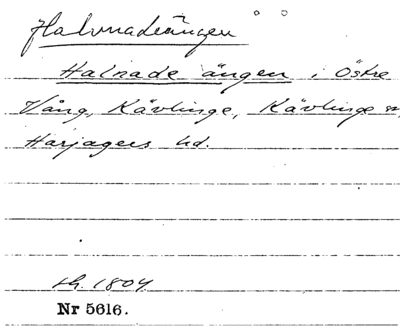 Halvnadeängen
Halnade ängen i Östre
Vång, Kävlinge, Kävlinge sn,
Harjagers hd.
Nr 5616.